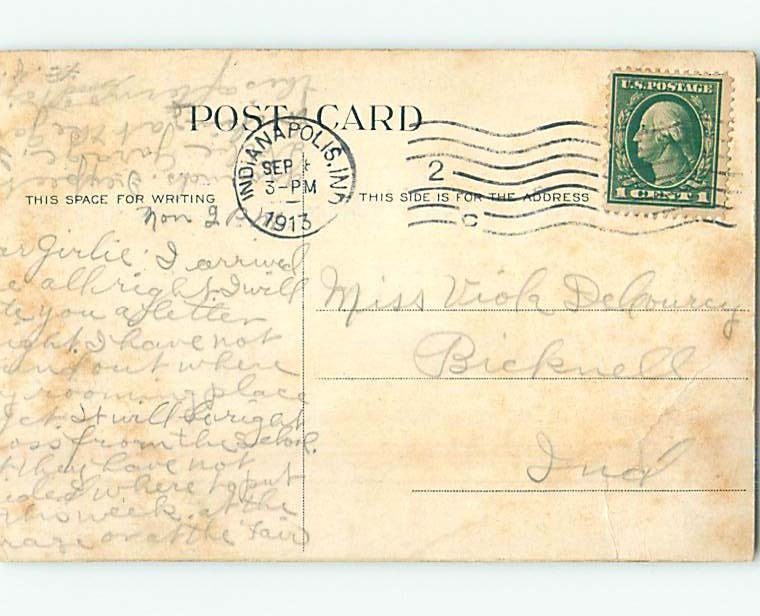 POST CARD
THIS SPACE FOR WRITING
THIS SIDE IS FOR THE ADDRESS
U.S. POSTAGE
1 CENT 1
INDIANAPOLIS, IND
SEP 1
3-PM
1913
2
C
Mon 2 P.M.
ar Girlie: I arrived
e all right I will
te you a letter
ight. I have not
ound out where
y rooming place
yet It will be right
oss from the School.
t they have not
ided where to put
this week. at the
rage or at the Fair
this afternoon
Miss Viola DeCourcy
Bicknell
Ind